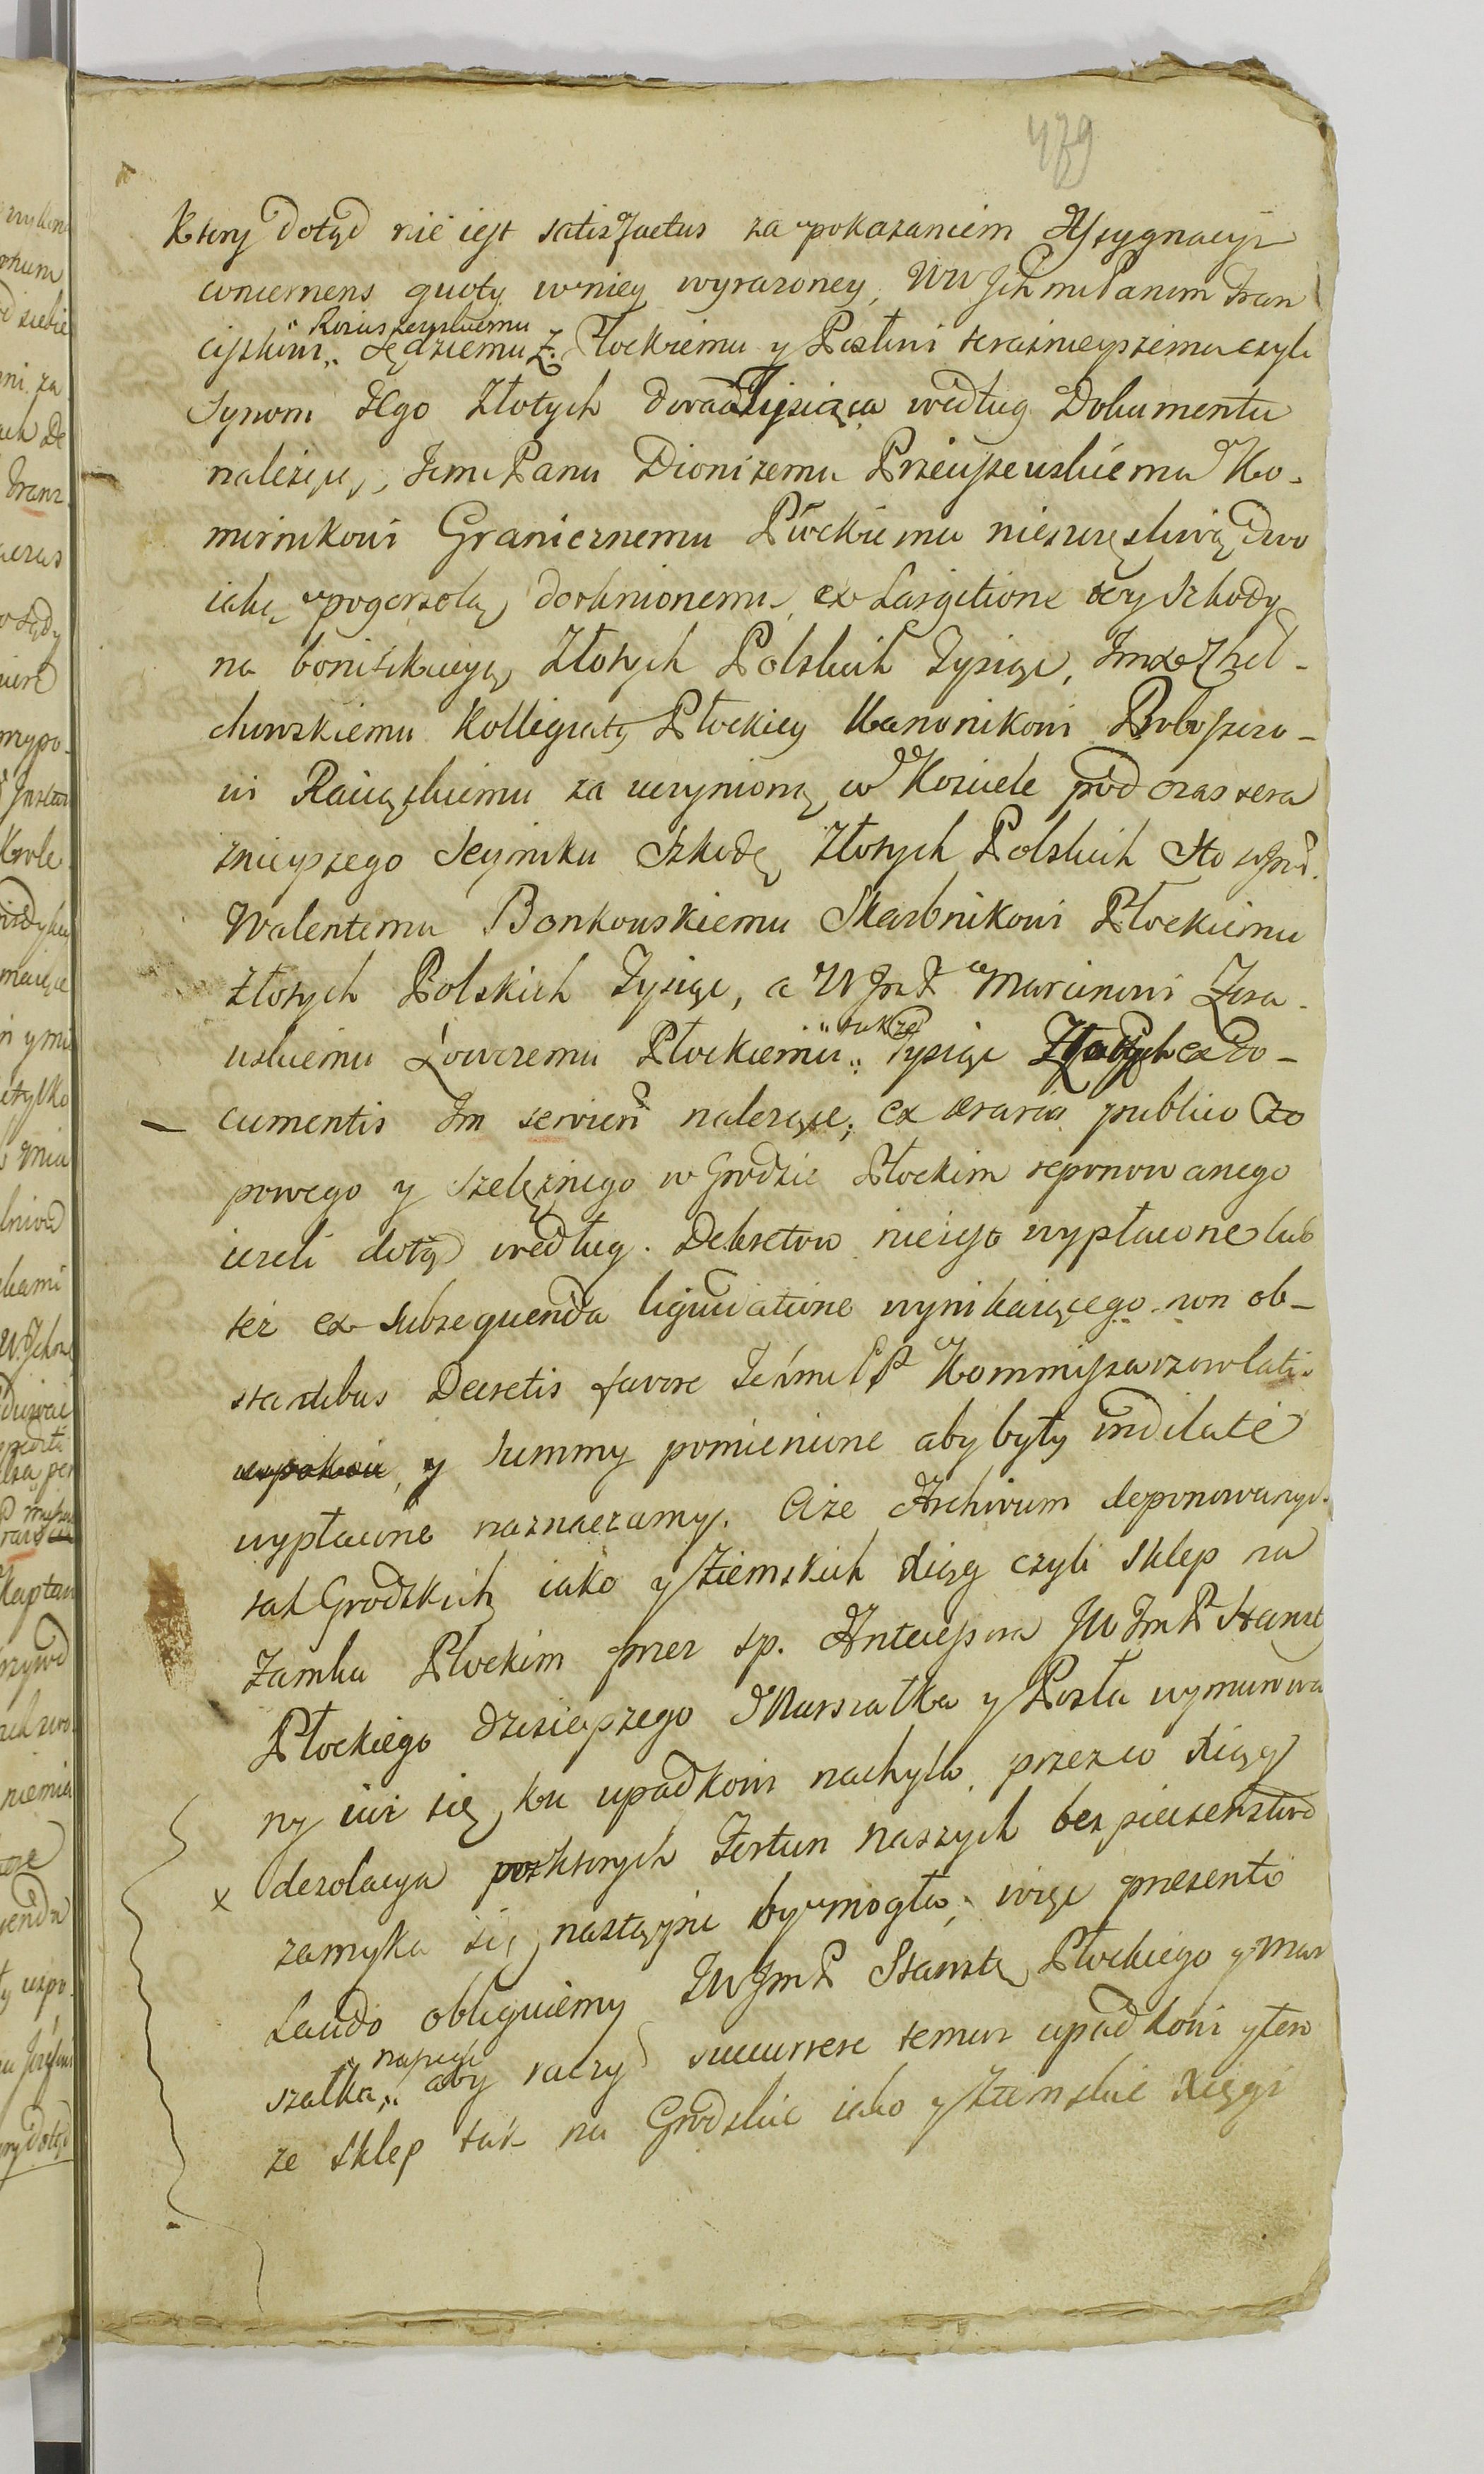 479
Ktory dotąd nie iest satisfactus za pokazaniem Assygnacyi
concernens quoty w niey wyrazoney, WW Jch mci Panom Fran
Rosciszewskiemu
ciszkowi Sędziemu Z. Płockiemu y Posłowi teraznieyszemu czyli
Synom Jego Złotych dwa Tysiąca według Dokumentu
należące, Jmc Panu Dionizemu Przeciszewskiemu Ko-
mornikowi Granicznemu Płockiemu nieszczęsliwą dwo
iaką pogorzelą dotknionemu, ex Largitione tey szkody
na bonifikacyą Złotych Polskich Tysiąc, Jmx
chowskiemu Kollegiaty Płockiey Kanonikowi Proboszczo-
wi Raciąskiemu za uczynioną w Kosciele pod czas tera
znieyszego Seymiku Szkodę Złotych Polskich Sto
Walentemu Bonkowskiemu Skarbnikowi Płockiemu
Złotych Polskich Tysiąc, a W Jm P Marcinowi Zora-
wskiemu Łowczemu Płockiemu Tysiąc Złotych ex Do-
także
cumentis Jm servien należące, ex aerario publico Czo
powego y Szelężnego w Grodzie Płockim reponowanego
iezeli dotąd według Dekretow nie iest wypłacone lub
tez ex subsequenda liquidatione wynikaiącego non ob-
stantibus Decretis favore Jchmc PP Kommissarzow latis
y Summy pomienione aby były indilate
wypłacone naznaczamy. A że Archivum deponowanych
tak Grodzkich iako y Ziemskich Xiąg czyli Sklep na
Zamku Płockim przez sp. Antecessora JW Jm P Starosty
Płockiego dzisieyszego Marszałka y Posła wymurowa
ny iuż się ku upadkowi nachyla, przez co Xiąg
x dezolacya w ktorych Fortun naszych bezpieczenstwo
zamyka się nastąpić by mogła, więc presenti
Laudo obliguiemy JW Jm P Starostę Płockiego y Mar
szałka naszego aby raczył succurrere temuż upadkowi y ten
ze sklep tak na Grodzkie iako y Ziemskie Xięgi